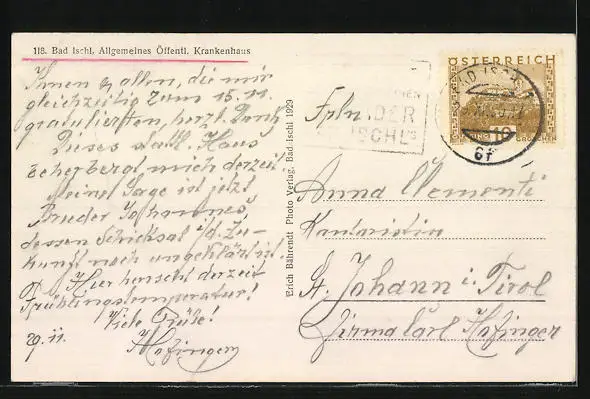 118. Bad Ischl. Allgemeines Öffentl. Krankenhaus
Ihnen & allen, die mir
gleichzeitig zum 15.11.
gratulierten, herzl. Dank
Dieses stattl. Haus
beherbergt mich derzeit.
Meine Lage ist jetzt
Bruder Johannes,
dessen Schicksal i/d. Zu-
kunft noch ungeklärt ist.
Hier herrscht derzeit
Frühlingstemperatur!
Viele Grüße!
29.11.
Hofinger
Erich Bährendt Photo Verlag, Bad-Ischl 1929
ÖSTERREICH
10
GROSCHEN
BAD ISCHL
6f
ISCHL'S
Frln
Anna Clementi
Kontoristin
St. Johann i. Tirol
Firma Carl Hofinger